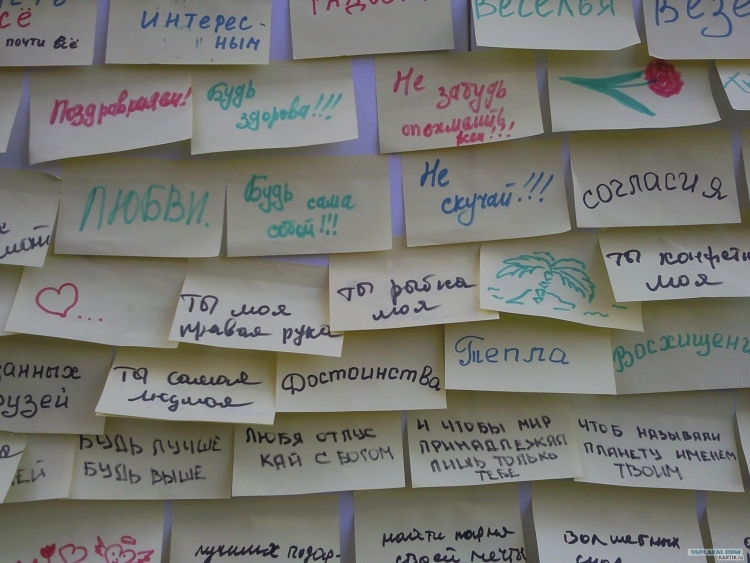 сё
почти всё
ИНТЕРЕС-
НЫМ
ВЕСЕЛЬЯ
Поздравляем!
Будь
здорова!!!
Не
забудь
всех!!!
ЛЮБВИ.
Будь сама
собой!!!
Не
скучай!!!
СОГЛАСИЯ
...
ТЫ МОЯ
правая рука
ТЫ рыбка
моя
ТЫ конфетк
моя
данных
рузей
ТЫ самая
Достоинства
Тепла
Восхищени
ЕЙ
БУДЬ ЛУЧШЕ
БУДЬ ВЫШЕ
ЛЮБЯ ОТПУС
КАЙ С БОГОМ
И ЧТОБЫ МИР
ПРИНАДЛЕЖАЛ
ЛИШЬ ТОЛЬКО
ТЕБЕ
ЧТОБ НАЗЫВАЛИ
ПЛАНЕТУ ИМЕНЕМ
ТВОИМ
лучших подар-
найти парня
своей мечты
волшебных
YAPLAKAL.COM
KARTIK.ru